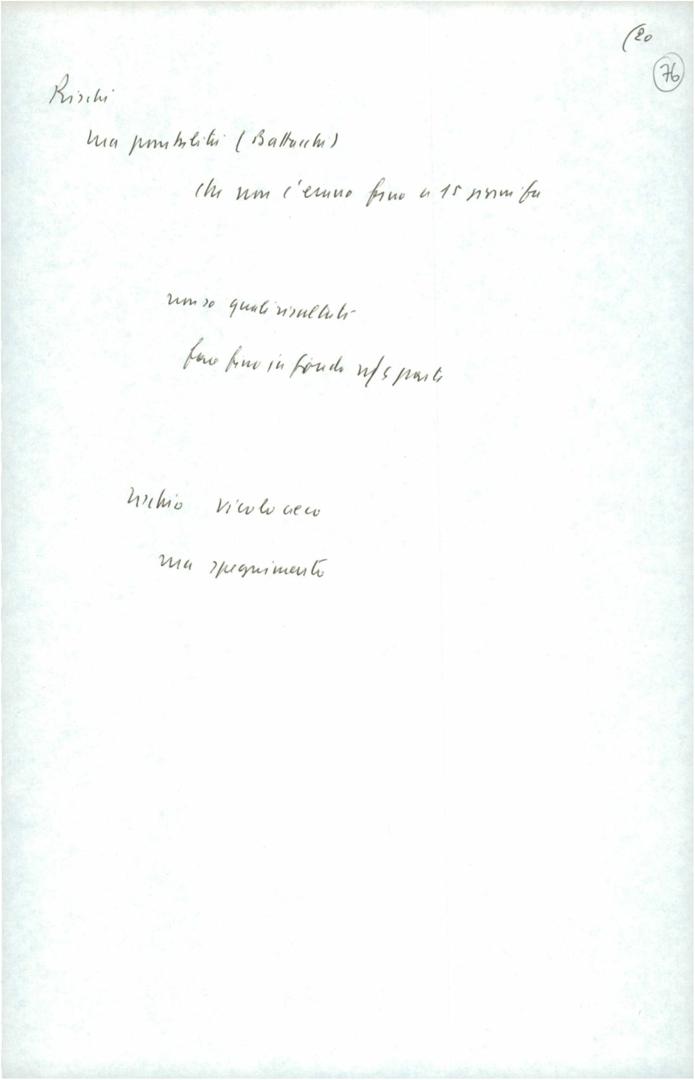 (20
76
Rischi
ma possibilità (Battacchi)
che non c'erano fino a 15 giorni fa
non so quali risultati
fare fino in fondo ns/ parte
rischio vicolo cieco
ma spegnimento